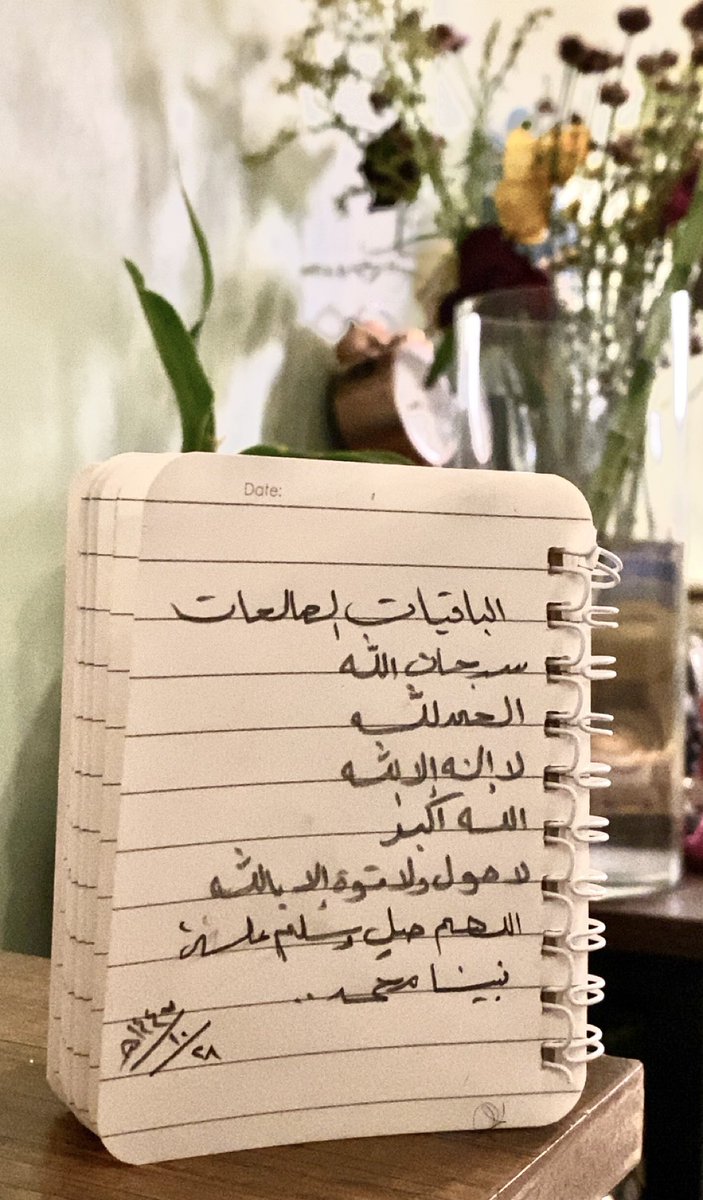 Date:
الباقيات الصالحات
سبحان الله
الحمدلله
لا إله إلا الله
الله أكبر
لا حول ولا قوة إلا بالله
اللهم صل وسلم على
نبينا محمد..
٢٨/١٠/١٤٤٣هـ